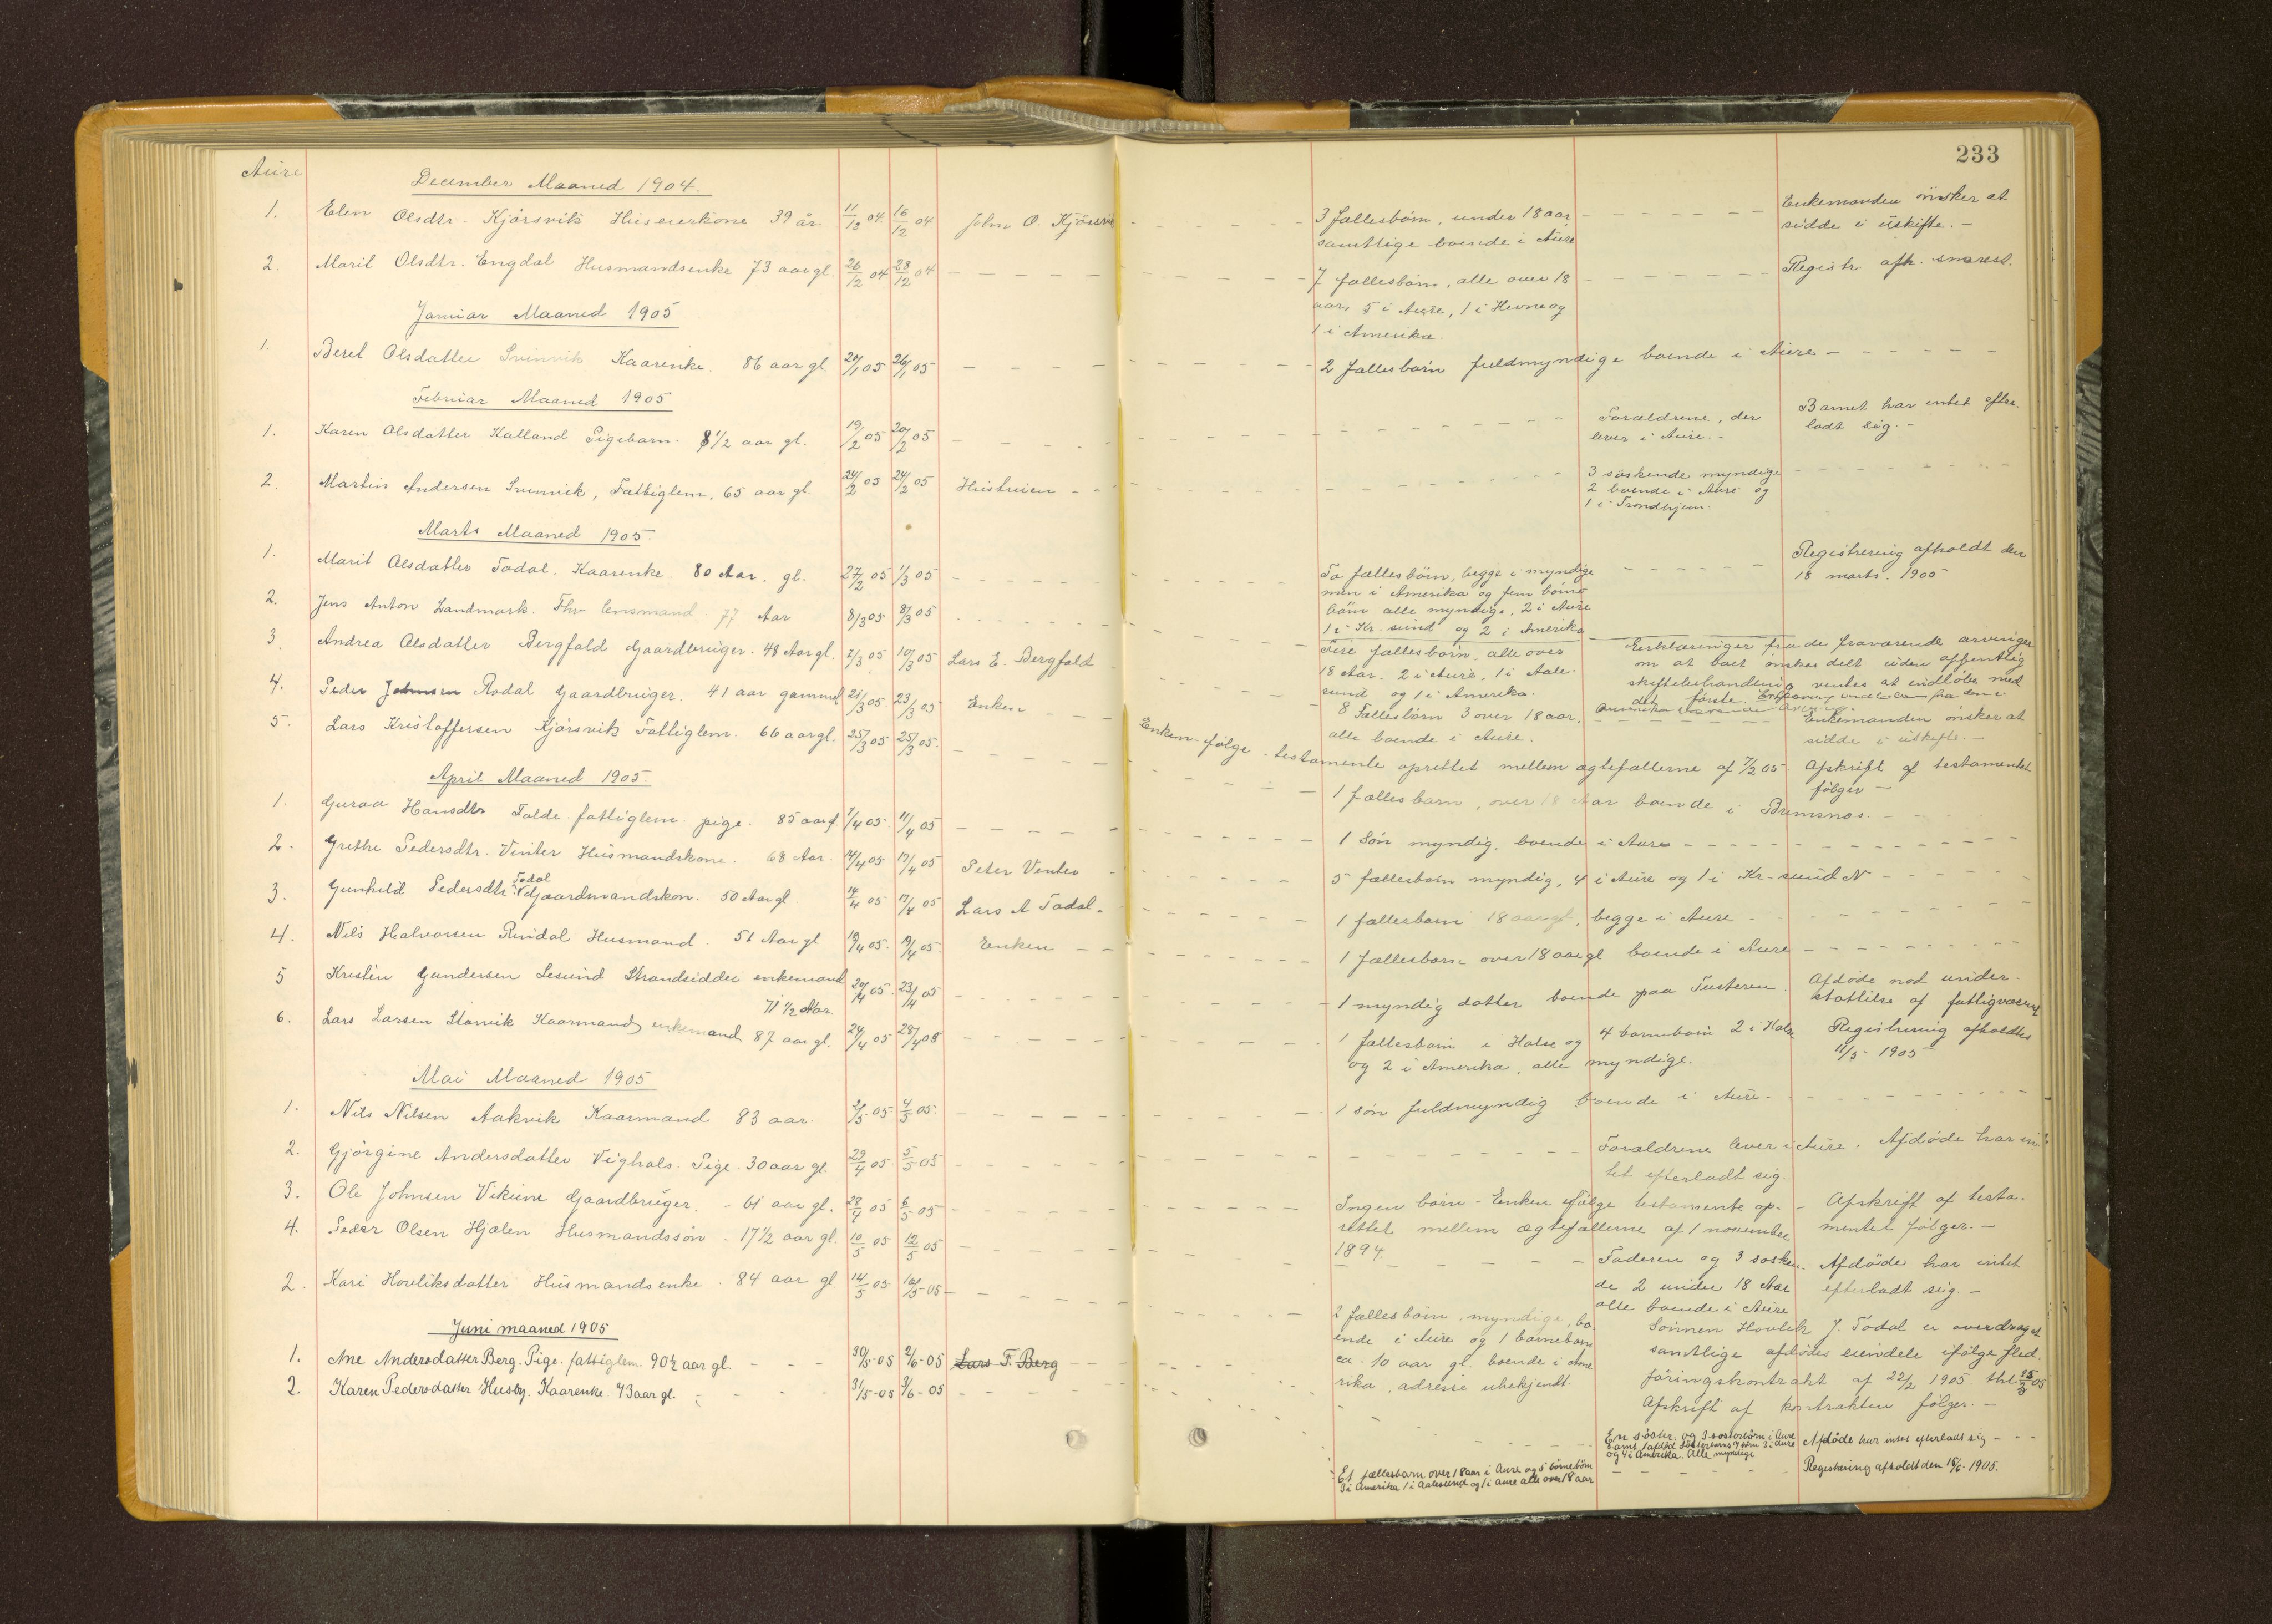 233
Aure
December Maaned 1904.
1. Elen Olsdtr. Kjörsvik Huseierkone 39 år. 11/12 04 16/12 04 John O. Kjörsvi
3 fællesbörn, under 18 aar
samtlige boende i Aure
Enkemanden önsker at
sidde i uskifte. -
2. Marit Olsdtr. Engdal Husmandsenke 73 aar gl. 26/12 04 28/12 04
7 fællesbörn, alle over 18
aar, 5 i Aure, 1 i Hevne og
1 i Amerika.
Registr. afh. snarest.
Januar Maaned 1905
1. Berel Olsdatter Svinvik Kaarenke. 86 aar gl. 20/1 05 26/1 05
2 fællesbörn fuldmyndige boende i Aure
Februar Maaned 1905
1. Karen Olsdatter Kalland Pigebarn. 8 1/2 aar gl. 19/2 05 20/2 05
Forældrene, der
lever i Aure. -
Barnet har intet efter-
ladt sig. -
2. Martin Andersen Svinvik, Fattiglem, 65 aar gl. 24/2 05 24/2 05 Hustruen
3 söskende myndige
2 boende i Aure og
1 i Trondhjem.
Marts Maaned 1905.
1. Marit Olsdatter Todal. Kaarenke. 80 Aar. gl. 27/2 05 1/3 05
To fællesbörn, begge i myndige
men i Amerika og fem börne
börn alle myndige, 2 i Aure
1 i Kr. sund og 2 i Amerika
Registrering afholdt den
18 marts. 1905
2. Jens Anton Landmark. Fhv lensmand. 77 Aar 8/3 05 8/3 05
Fire fællesbörn, alle over
18 Aar. 2 i Aure, 1 i Aale-
sund og 1 i Amerika.
Erklæringer fra de fraværende arvinger
om at boet önskes delt uden offentlig
skiftebehandling ventes at indlöbe med
det förste.
3. Andrea Olsdatter Bergfald Gaardbruger. 48 Aar gl. 7/3 05 10/3 05 Lars E. Bergfald
8 Fællesbörn 3 over 18 aar,
alle boende i Aure.
Enkemanden önsker at
sidde i uskifte. -
4. Peder Johnsen Rodal Gaardbruger. 41 aar gammel 21/3 05 23/3 05 Enken
Enken - fölge - testamente oprettet mellem ægtefællerne af 7/2 05 Afskrift af testamentet
fölger -
5. Lars Kristoffersen Kjörsvik Fattiglem. 66 aar gl. 25/3 05 25/3 05.
1 fælles barn, over 18 Aar boende i Bremsnes.
April Maaned 1905.
1. Guraa Hansdtr Folde fattiglem pige. 85 aar gl. 7/4 05. 11/4 05
1 Sön myndig, boende i Aure
2. Grethe Pedersdtr. Vinter Husmandskone. 68 Aar. 14/4 05 17/4 05 Peter Venter
5 fællesbörn myndig, 4 i Aure og 1 i Kr-sund N
3. Gunhild Pedersdtr Todal Gaardmandskon. 50 Aar gl. 14/4 05 17/4 05 Lars A Todal.
1 fællesbarn 18 aar gl, begge i Aure
4. Nils Halvorsen Rindal Husmand. 51 Aar gl 18/4 05. 19/4 05. Enken
1 fællesbarn over 18 aar gl boende i Aure
5 Kristin Gundersen Lesund Strandsidder enkemand 20/4 05. 23/4 05
71 1/2 Aar.
1 myndig datter boende paa Tusteren.
Afdöde nöd under-
stöttelse af fattigvæsenet
6. Lars Larsen Stamvik Kaarmand enkemand 87 aar gl. 24/4 05 28/4 05
1 fællesbarn i Halse og 4 barnebörn 2 i Halse
og 2 i Amerika, alle myndige.
Registrering afholdtes
11/5 1905
Mai Maaned 1905
1. Nils Nilsen Aakvik Kaarmand 83 aar. 2/5 05 4/5 05.
1 sön fuldmyndig boende i Aure
2. Gjörgine Andersdatter Vighals. Pige. 30 aar gl. 29/4 05 5/5 05
Forældrene lever i Aure. Afdöde har in-
tet efterladt sig.
3. Ole Johnsen Vikene Gaardbruger. - 61 aar gl. 28/4 05 6/5 05
Ingen börn - Enken ifölge testamente op-
rettet mellem ægtefællerne af 1 november
1894.
Afskrift af testa-
mentet fölger. -
4. Peder Olsen Hjælen Husmandssön - 17 1/2 aar gl. 10/5 05 12/5 05
Faderen og 3 sösken-
de 2 under 18 Aar
alle boende i Aure
Afdöde har intet
efterladt sig. -
2. Kari Hovliksdatter Husmandsenke. 84 aar gl. 14/5 05 16/5 05
2 fællesbörn, myndige, bo-
ende i Aure og 1 barnebarn
ca. 10 aar gl. boende i Ame
rika, adresse ubekjendt
Sönnen Hovlik J. Todal er overdraget
samtlige afdödes eiendele ifölge fled-
föringskontrakt af 22/2 1905. thl 25/2 05
Afskrift af kontrakten fölger. -
Juni maaned 1905
1. Ane Andersdatter Berg. Pige. fattiglem. 90 1/2 aar gl. 30/5-05 2/6-05 Lars T. Berg
En söster, og 3 sösterbörn i Aure
samt 1 afdöd sösterbarns 7 börn 3 i Aure
og 4 i Amerika. Alle myndige
Afdöde har intet efterladt sig
2. Karen Pedersdatter Husby. Kaarenke. 73 aar gl. 31/5-05 3/6-05
Et fællesbarn over 18 aar i Aure og 5 börnebörn
3 i Amerika 1 i Aalesund og 1 i Aure alle over 18 aar
Registrering afholdt den 15/6-1905.